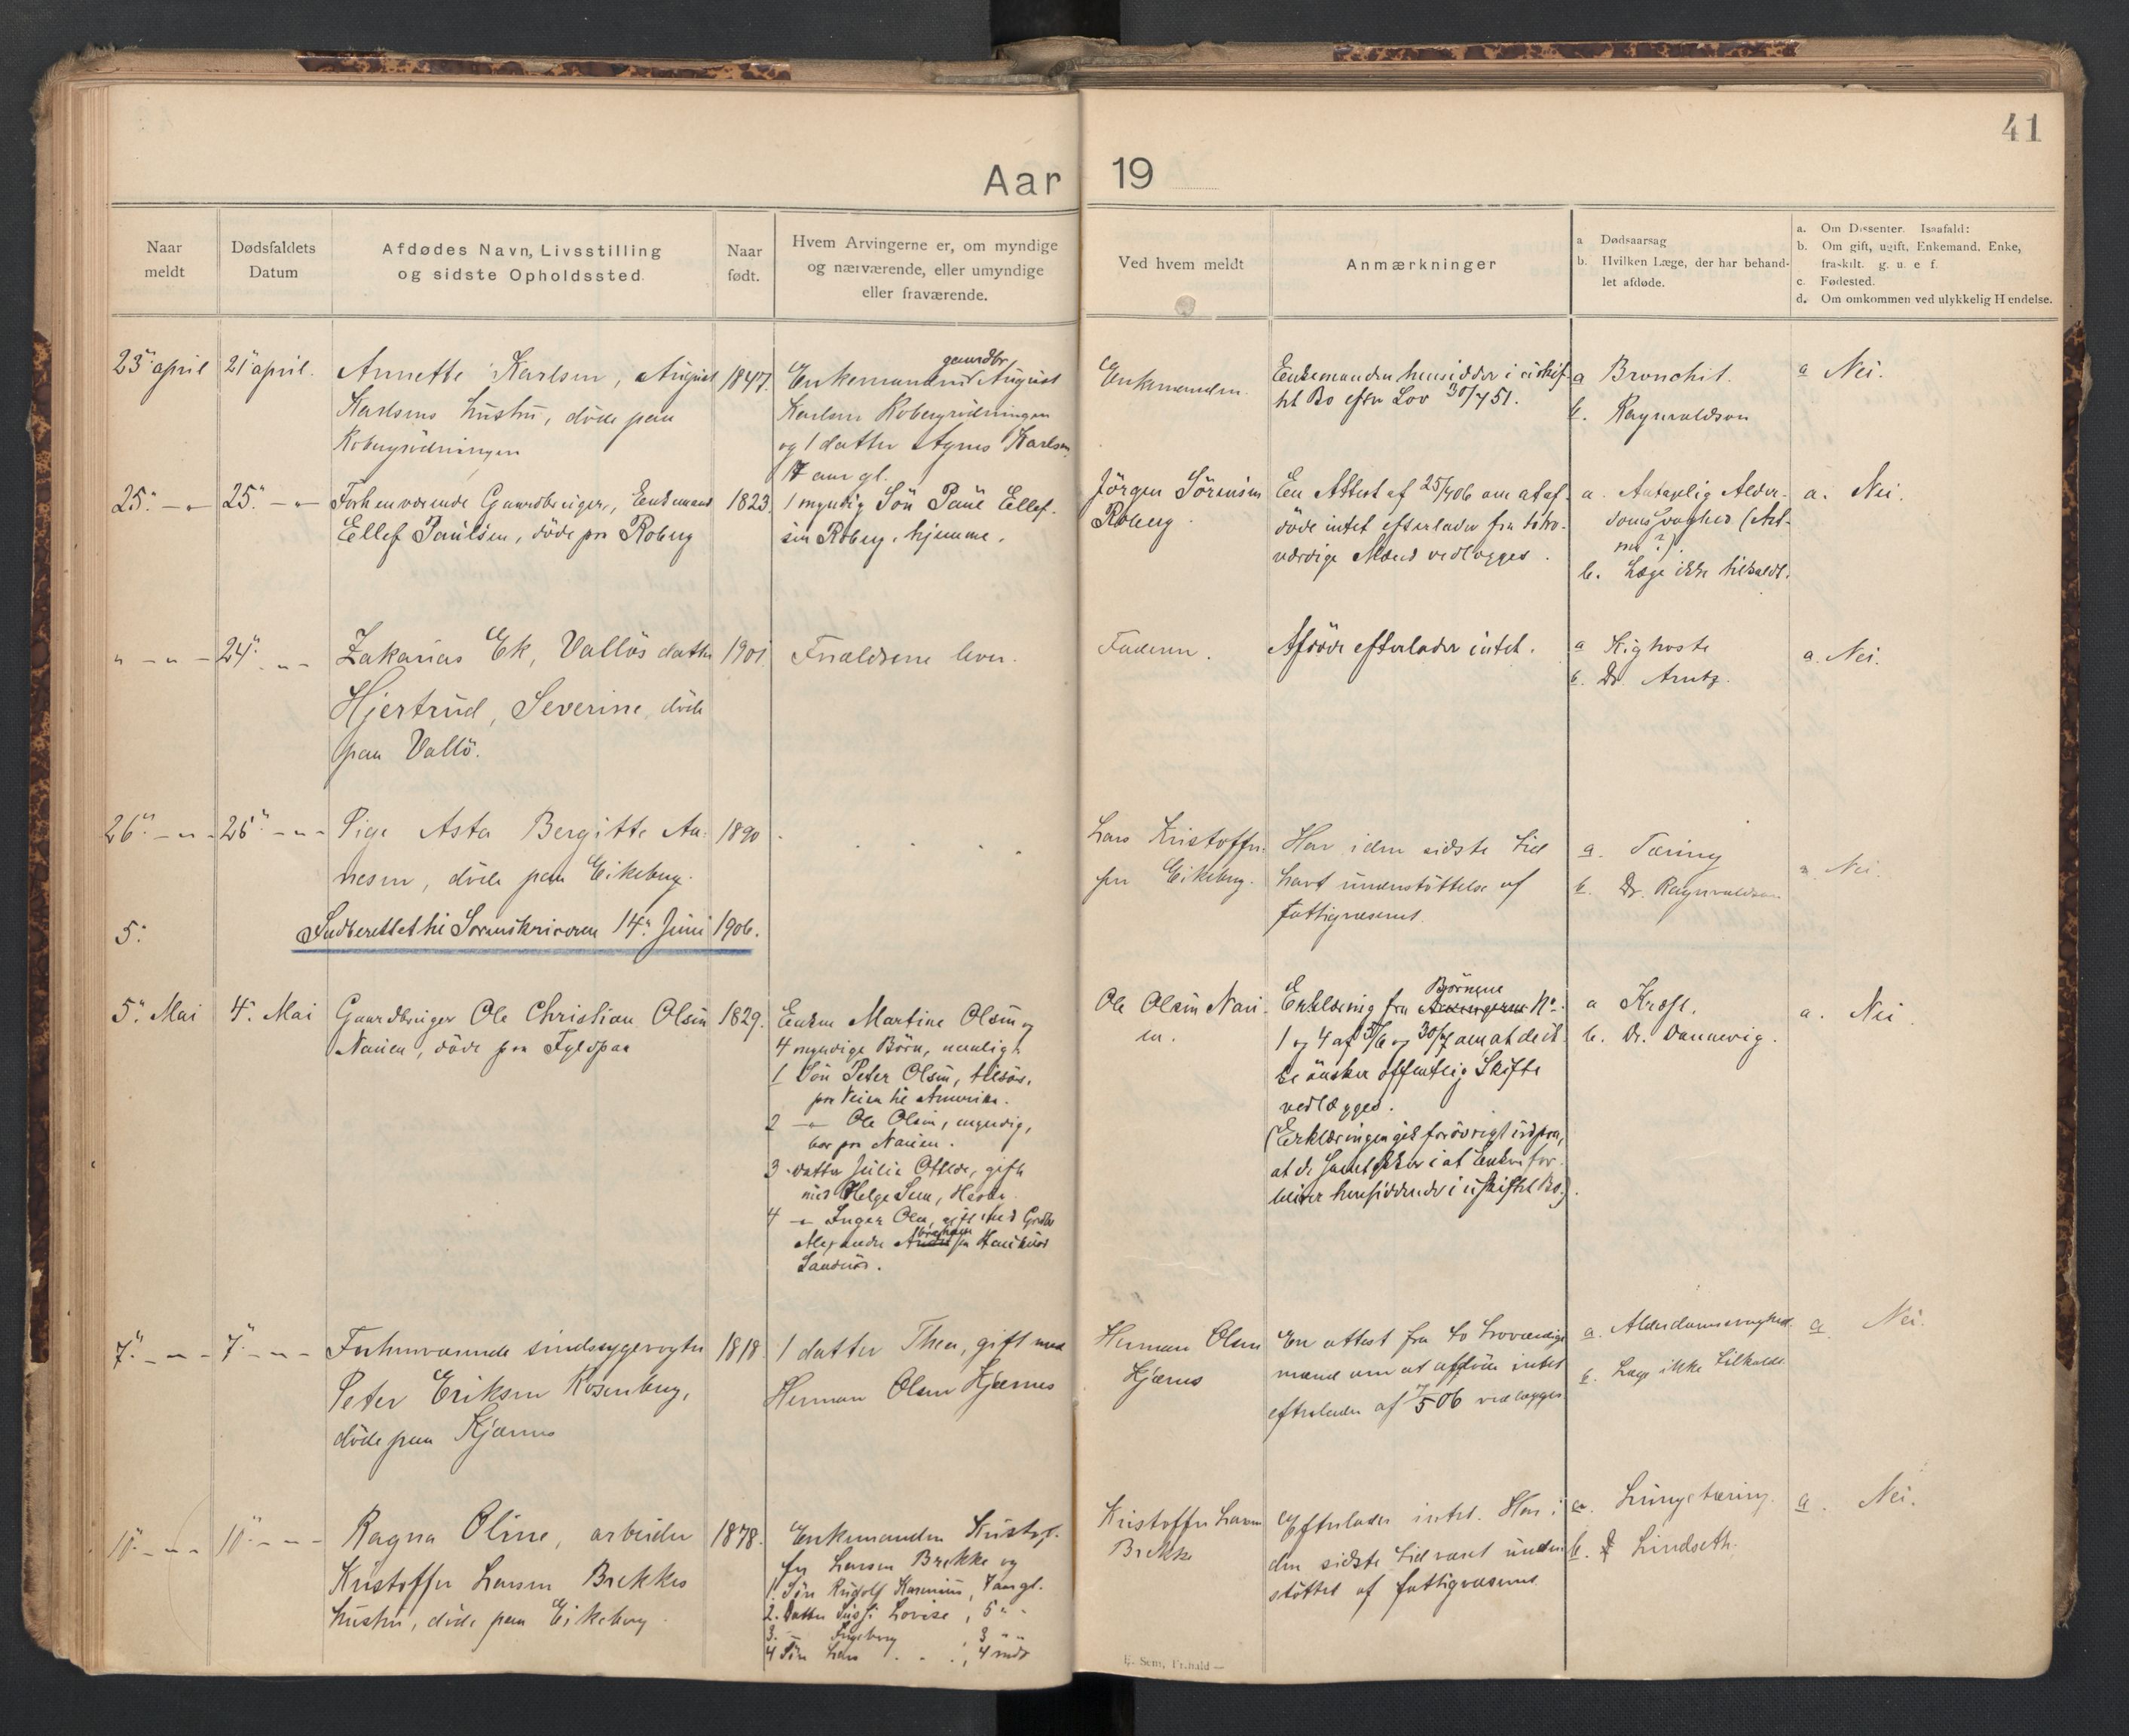 41
Aar 19
Naar
meldt
Dødsfaldets
Datum
Afdødes Navn, Livsstilling
og sidste Opholdssted.
Naar
født.
Hvem Arvingerne er, om myndige
og nærværende, eller umyndige
eller fraværende.
Ved hvem meldt
Anmærkninger
a Dødsaarsag
b. Hvilken Læge, der har behand-
let afdøde.
a. Om Dissenter. Isaafald:
b. Om gift, ugift, Enkemand. Enke,
fraskilt. g. u. e f.
c. Fødested.
d. Om omkommen ved ulykkelig Hendelse.
23" april
21" april.
Annette Karlsen, August
Karlsens hustru, döde paa
Robergrödningen
1847.
gaardbr.
Enkemanden August
Karlsen Robergrödningen
og 1 datter Agnes Karlsen
17 aar gl.
Enkemanden.
Enkemanden hensidder i uskif-
tet Bo efter Lov 30/7 51.
a Bronchit.
b. Raynvaldson
a Nei.
25." — " —
25." — " —
Forhenværende Gaardbruger, Enkemand
Ellef Paulsen, döde paa Roberg
1823.
1 myndig Sön Paul Ellef-
sen Roberg, hjemme.
Jörgen Sörensen
Roberg.
En Attest af 25/4 06 om at af-
döde intet efterlader fra to tro-
værdige Mænd vedlægges.
a. Antagelig Alder-
domssvaghed (Ast-
ma?).
b. Læge ikke tilkaldt.
a. Nei.
" — " —
24." — " —
Zakarias Ek, Vallös datter
Hjertrud, Severine, döde
paa Vallö.
1901.
Forældrene lever.
Faderen.
Afdöde efterlader intet.
a Kighoste
b. Dr. Arntz.
a. Nei.
26." — " —
25." — " —
Pige Asta Bergitte An-
nesen, döde paa Eikeberg.
1890
Lars Kristoffer-
sen Eikeberg.
Har i den sidste tid
havt understöttelse af
fattigvæsenet.
a. Tæring
b. Dr. Raynvaldson
a. Nei.
5."
Indberettet til Sorenskriveren 14" Juni 1906.
5" Mai
4. Mai
Gaardbruger Ole Christian Olsen
Nauen, döde paa Fyldpaa
1829.
Enken Martine Olsen og
4 myndige Börn, nemlig:
1 Sön Peter Olsen, tilsöes,
paa Veien til Amerika.
2 — " — Ole Olsen, myndig,
bor paa Nauen.
3. datter Julie Otilde, gift
med Helge Sem,
4 — " — Inger Olea, gift med Grdbr
Alexander Abrahamsen
Sandnæs.
Ole Olsen Nau-
en.
Börnene
Erklæring fra Arvingerne No
1 og 4 af 5/6 og 30/7 om, at de ik-
ke önsker offentlig Skifte
vedlægges.
(Erklæringen gik forövrigt ud paa,
at de samtykker i at Enken for-
bliver hensiddende i uskiftet Bo.).
a Kræft.
b. Dr. Dannevig.
a. Nei.
7." — " —
7." — " —
Forhenværende sindssygevogter
Peter Eriksen Rosenberg,
döde paa Kjærnes
1818.
1 datter Thea, gift med
Herman Olsen Kjærnes
Herman Olsen
Kjærnes
En attest fra to troværdige
mænd om at afdöde intet
efterlader af 7/5 06 vedlægges
a. Alderdomssvaghed.
b. Læge ikke tilkaldt.
a. Nei.
10." — " —
10." — " —
Ragna Oline, arbeider
Kristoffer Larsen Brekkes
hustru, döde paa Eikeberg.
1878.
Enkemanden Kristof-
fer Larsen Brekke og
1. Sön Rudolf, 7 aar gl.
2. Datter Sussi Lovise, 5 " "
3. — Ingeborg 3 " "
4 Sön Lars . . . , 4 mdr
Kristoffer Larsen
Brekke
Efterlader intet. Har i
den sidste tid været under-
stöttet af fattigvæsenet
a. Lungetæring.
b. Lindseth.
a. Nei.
E. Sem, Fr.hald —